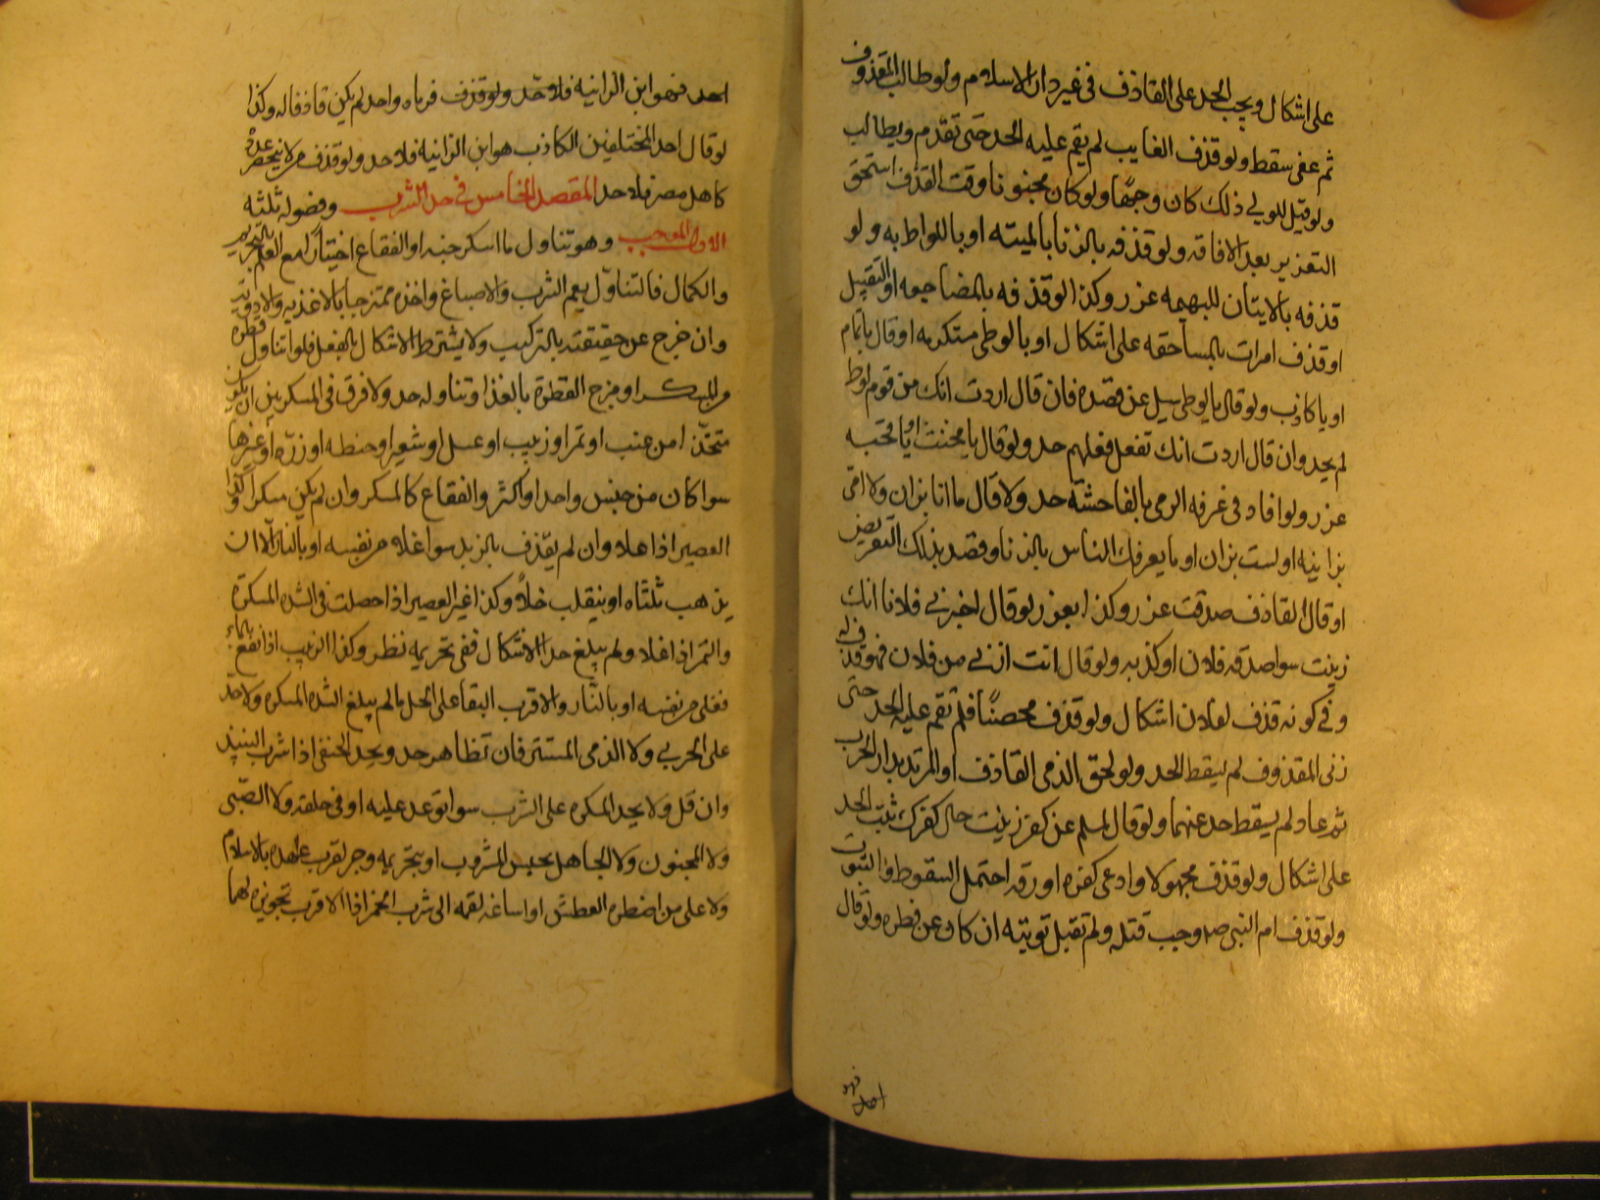 على اشكال ويجب الحد على القاذف في غير دار الاسلام ولو طالب المقذوف
ثم عفى سقط ولو قذف الغايب لم يقم عليه الحد حتى تقدم ويطالب
ولو قيل للولي ذلك كان وجها ولو كان مجنونا وقت القذف استحق
التعزير بعد الافاقه ولو قذفه بالزنا بالميته او باللواط به ولو
قذفه بالايتان للبهيمه عزر وكذا لو قذفه بالمضاجعه او التقبيل
او قذف امرات بالمساحقه على اشكال او بالوطي مستكرهه او قال يا نمام
او يا كاذب ولو قال يا لوطي سيل عن قصده فان قال اردت انك من قوم لوط
لم يحد وان قال اردت انك تفعل فعلهم حد ولو قال يا مخنث او يا قحبه
عزر ولو افاد في عرفه الرمي بالفاحشة حد ولا قال ما انا بزان ولا امي
بزانيه او لست بزان او ما يعرفك الناس بالزنا وقصد بذلك التعريض
او قال القاذف صدقت عزر وكذا يعزر لو قال اخبرني فلان انك
زنيت سوا صدقه فلان او كذبه ولو قال انت ازنى من فلان فهو قذف له
وفي كونه قذف لفلان اشكال ولو قذف محصنا فلم تقم عليه الحد حتى
زنى المقذوف لم يسقط الحد ولو لحق الذمي القاذف او المرتد بدار الحرب
ثم عاد لم يسقط حد عنهما ولو قال لمسلم عن كفر زنيت حال كفرك ثبت الحد
على اشكال ولو قذف مجهولا وادعى كفره او رقه احتمل السقوط والثبوت
ولو قذف ام النبي صه وجب قتله ولم تقبل توبته ان كان عن فطره ولو قال
احد فهو ابن الزانيه فلا حد ولو قذف فرماه واحد لم يكن قاذفا له وكذا
لو قال احد المختلفين الكاذب هو ابن الزانيه فلا حد ولو قذف من لا ينحصر عدده
كاهل مصر فلا حد المقصد الخامس في حد الشرب وفصوله ثلثه
الاول الموجب وهو تناول ما اسكر جنسه او الفقاع اختيارا مع العلم بالتحريم
والكمال فالتناول يعم الشرب والاصباغ واخذه ممتزجا بالاغذيه والادويه
وان خرج عن حقيقته بالتركيب ولا يشترط الاسكال بالفعل فلو تناول قطرة
من المسكر او مزج القطرة بالغذا وتناوله حد ولا فرق في المسكر بين ان يكون
متخذا من عنب او تمر او زبيب او عسل او شعير او حنطه او ذره او غيرها
سوا كان من جنس واحد او اكثر والفقاع كالمسكر وان لم يكن مسكرا وكذا
العصير اذا غلا وان لم يقذف بالزبد سوا غلا من نفسه او بالنار الا ان
يذهب ثلثاه او ينقلب خلا وكذا غير العصير اذا حصلت في الشده المسكرة
والتمر اذا غلا ولم يبلغ حد الاسكال ففي تحريمه نظر وكذا الزبيب اذا نقع بالماء
فغلى من نفسه او بالنار والاقرب البقا على الحل ما لم يبلغ الشده المسكره ولا حد
على الحربي ولا الذمي المستتر فان تظاهر حد ويحد الحنفي اذا شرب النبيذ
وان قل ولا يحد المكره على الشرب سوا توعد عليه او في حلقه ولا الصبي
ولا المجنون ولا الجاهل بجنس المشروب او بتحريمه وجر لقرب عهده بالاسلام
ولا على من اضطره العطش او اساغه لقمه الى شرب الخمر اذ الاقرب تجويزه لهما